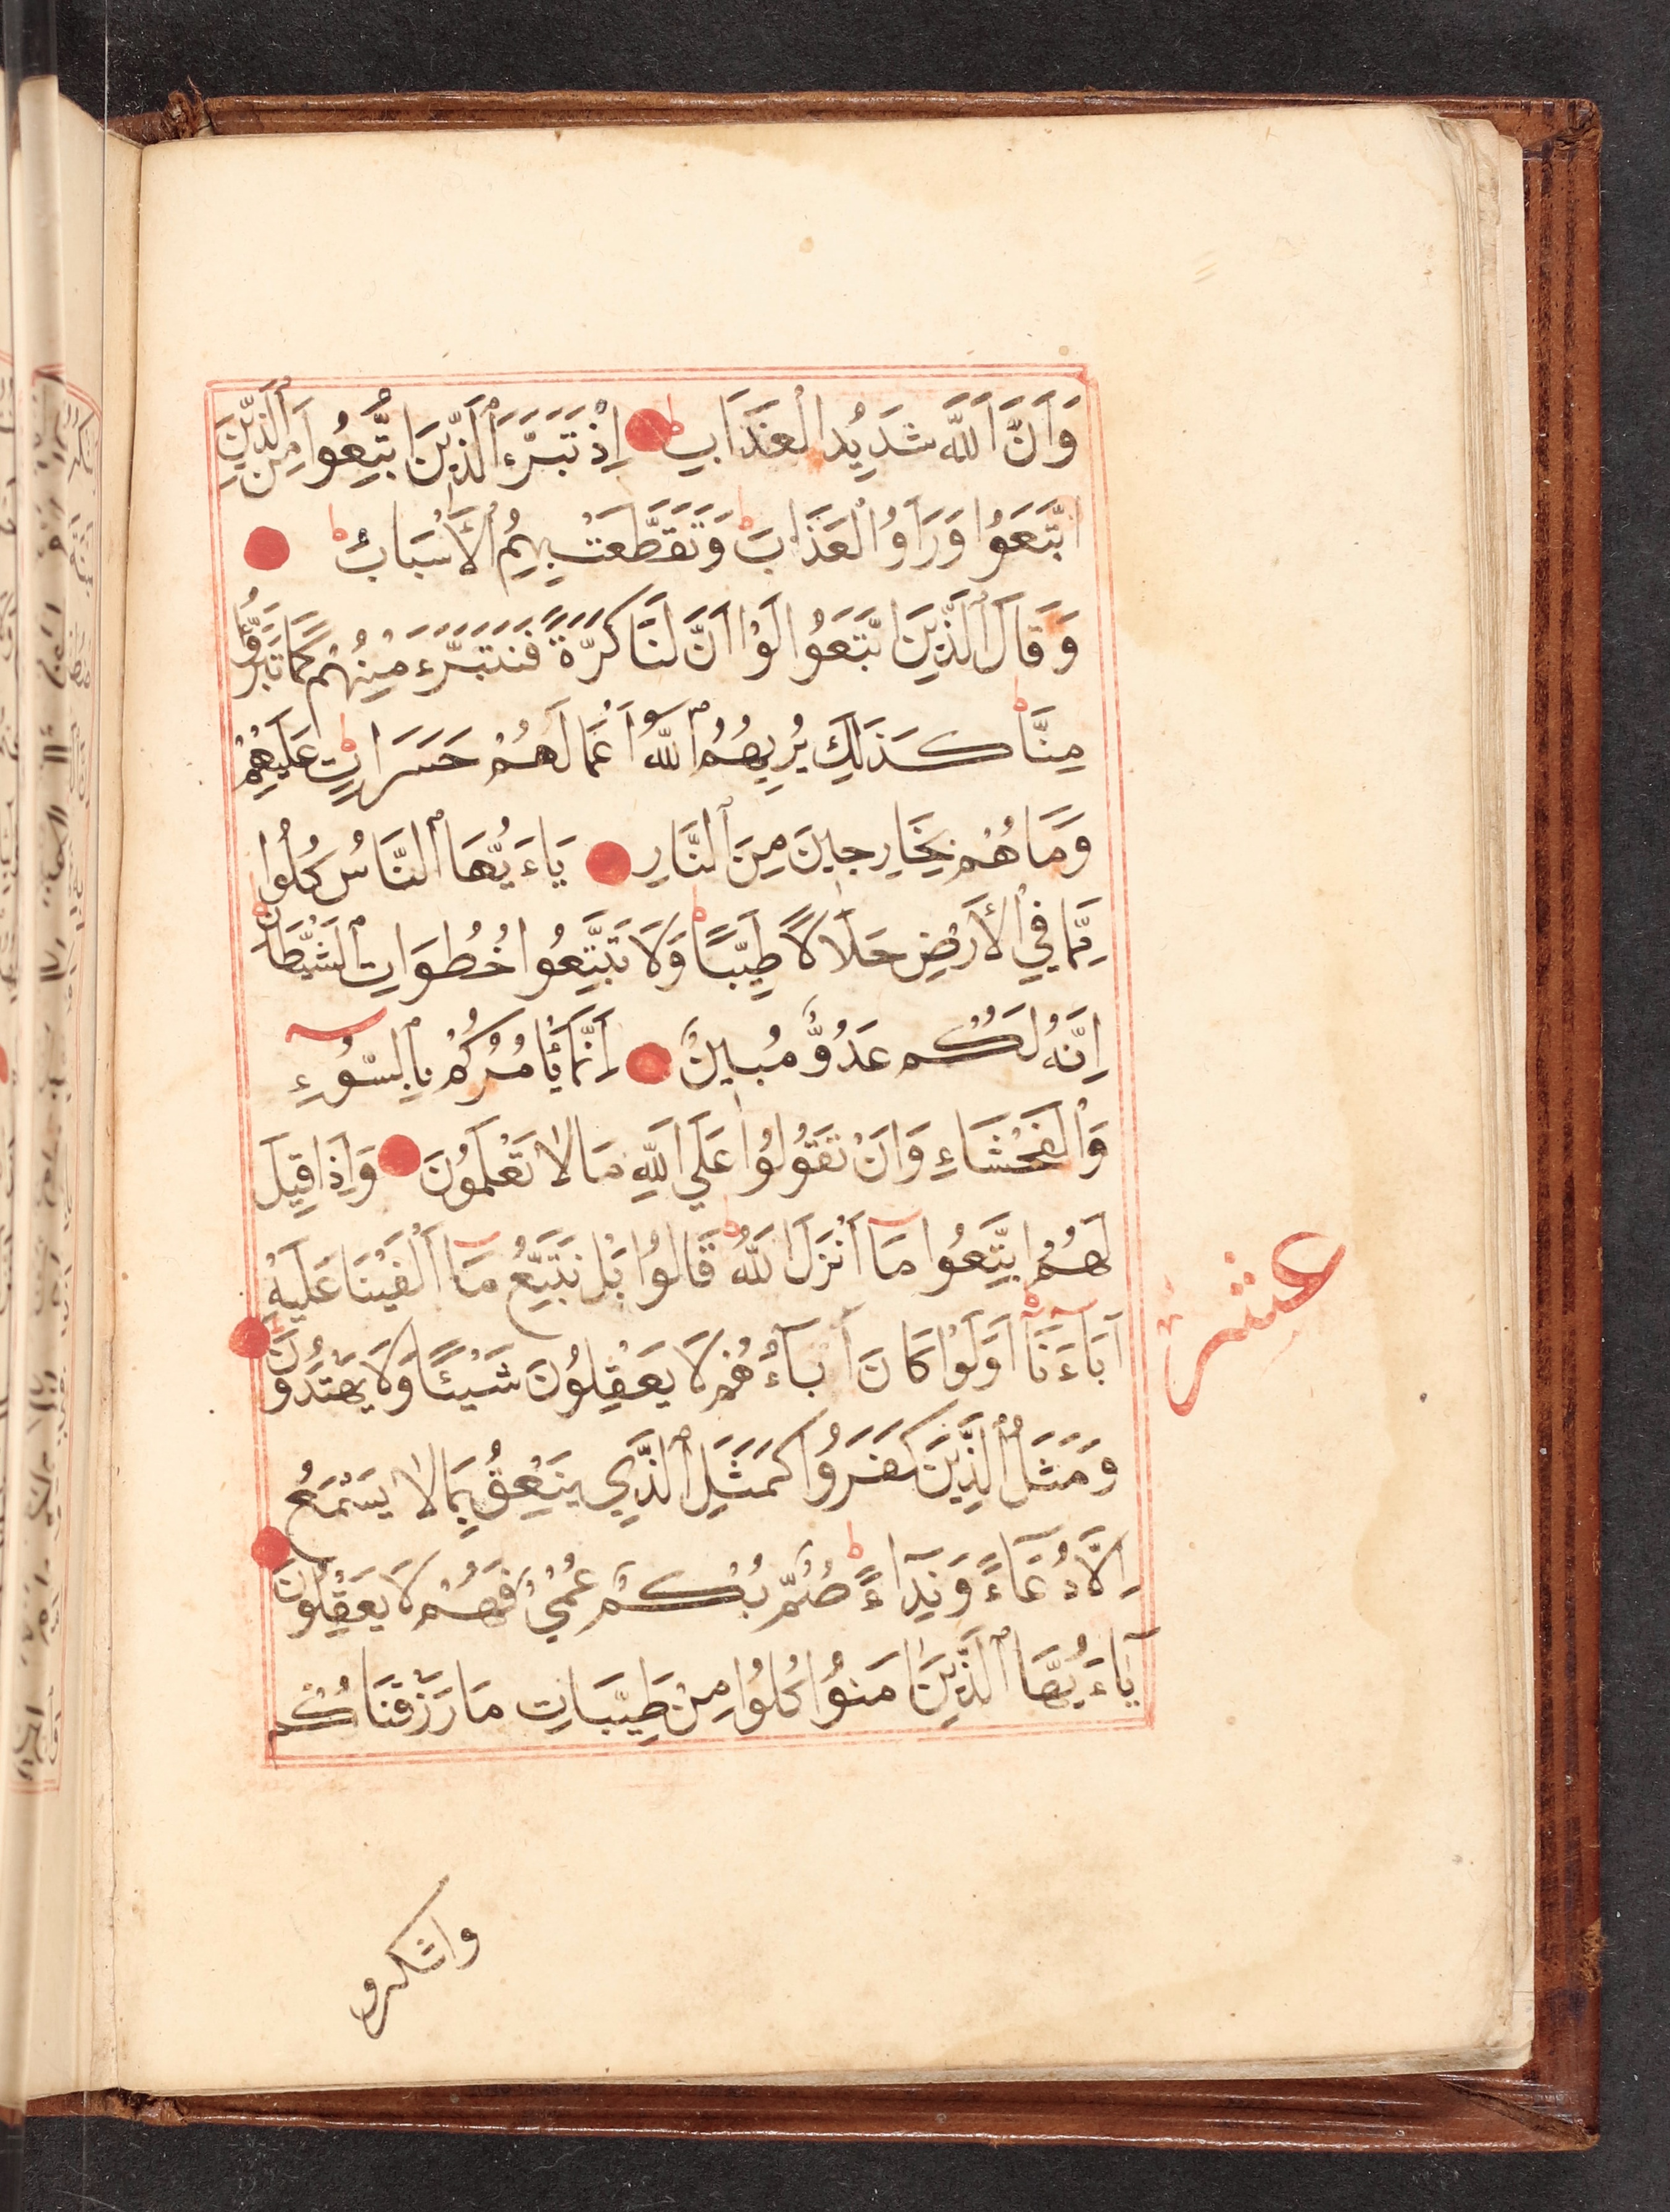 وَاَنَّ اَللَّهَ شَدِيدُ الْعَذَابِ ط اِذْ تَبَرَّءَ اَلَّذِينَ اتُّبِعُوا مِنَ اَلَّذِينَ
اتَّبَعَوُا وَرَاَوُ الْعَذَابَ ط وَتَقَطَّعَتْ بِهِمُ الْأَسْبَابُ ط
وَقَالَ اَلَّذِينَ اتَّبَعَوُا لَوْ اَنَّ لَنَا كَرَّةً فَنَتَبَرَّءَ مِنْهُمْ كَمَا تَبَرَّؤُ
مِنَّا ط كَذَلِكَ يُرِيهِمُ اللَّهُ اَعْمَالَهُمْ حَسَرَاتٍ ط عَلَيْهِمْ
وَمَا هُمْ بِخَارِجِينَ مِنَ النَّارِ يَاءَيُّهَا النَّاسُ كُلُوا
مِمَّا فِي الْأَرْضِ حَلَالًا طَيِّبًا ط وَلَا تَتَّبِعُوا خُطُوَاتِ الشَّيْطَانِ ط
اِنَّهُ لَكُمْ عَدُوٌّ مُبِينٌ اِنَّمَا يَأْمُرُكُمْ بِالسُّوءِ
وَالْفَحْشَاءِ وَاَنْ تَقُولُوا عَلَي اللَّهِ مَا لَا تَعْلَمُونَ وَاِذَا قِيلَ
لَهُمُ اتَّبِعُوا مَا اَنْزَلَ اللَّهُ ط قَالُوا بَلْ نَتَّبِعُ مَا اَلْفَيْنَا عَلَيْهِ
آبَاءَنَا ط اَوَلَوْ كَانَ آبَاءُهُمْ لَا يَعْقِلُونَ شَيْئًا وَلَا يَهْتَدُونَ
وَمَثَلُ الَّذِينَ كَفَرَوُا كَمَثَلِ الَّذِي يَنْعِقُ بِمَا لَا يَسْمَعُ
اِلَّا دُعَاءً وَنِدَاءً ط صُمٌّ بُكْمٌ عُمْيٌ فَهُمْ لَا يَعْقِلُونَ
يَاءَيُّهَا اَلَّذِينَ اٰمَنُوا كُلُوا مِنْ طَيِّبَاتِ مَا رَزَقْنَاكُمْ
عشر
واشكرو